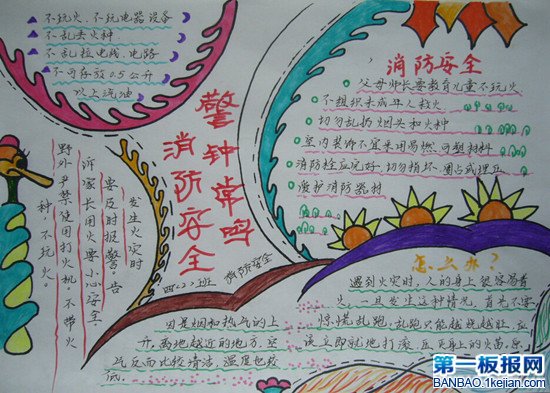 不玩火、不玩电器设备
不乱丢火种
不乱拉电线、电路
不可存放0.5公斤
以上汽油
警钟常鸣
消防安全
消防安全
父母师长要教育儿童不玩火
不组织未成年人救火
切勿乱扔烟头和火种
室内装饰不宜采用易燃可塑材料
消防栓应完好,切勿损坏、圈占或埋压
爱护消防器材
发生火灾时
要及时报警告
诉家长用火要小心安全
野外严禁使用打火机,不带火
种,不玩火。
四(2)班
消防安全
因是烟和热气的上
升,离地越近的地方,空
气反而比较清洁,温度也较
低。
怎么办?
遇到火灾时,人的身上很容易着
火,一旦发生这种情况,首先不要
惊慌乱跑,乱跑只能越烧越旺,应
该立即就地打滚,压灭身上的火苗,原
第一板报网
BANBAO.1kejian.com